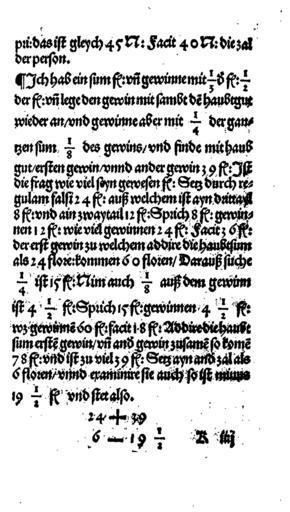 pũ:das ist gleych 45 N: Facit 40 N: die zal
der person.
¶Ich hab ein sum fl:vñ gewinne mit 1/3 d̕ fl: 1/2
der fl:vñ lege den gewin mit sambt dē haubtgut
wieder an/vnd gewinne aber mit 1/4 der gan-
tzen sum 1/8 des gewins/vnd finde mit haub
gut/ersten gewin/vnnd ander gewin 39 fl: Ist
die frag wie viel seyn gewesen fl: Setz durch re-
gulam falsi 24 fl: auß welchem ist ayn drittayl
8 fl:vnd ain zwaytail 12 fl:Sprich 8 fl: gewin-
nen 12 fl: wie viel gewinnen 24 fl: Facit 36 fl:
der erst gewin zu welchem addire die haubtsum
als 24 flore:kommen 60 floren/ Darauß suche
1/4 ist 15 fl:Nim auch 1/8 auß dem gewinn
ist 4 1/2 fl:Sprich 15 fl:gewinnen 4 1/2 fl:
wz gewinnē 60 fl:facit 18 fl: Addire die haubt
sum erstē gewin/vñ and̕ gewin zusamē so komē
78 fl:vnd ist zu viel 39 fl: Setz ayn and̕ zal als
6 floren/vnnd examinire sie auch so ist minus
19 1/2 fl vnd stet also.
24 + 39
6 — 19 1/2 K iij